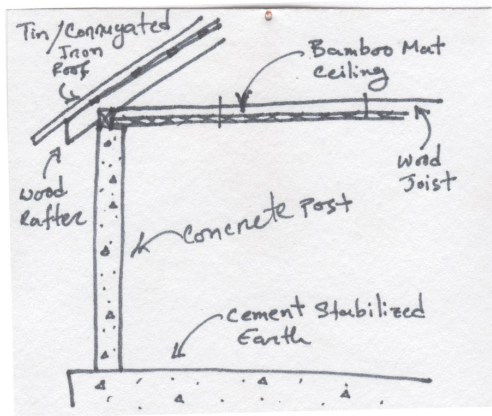 Tin/Corrugated
Iron
Roof
Bamboo Mat
Ceiling
Wood
Rafter
Wood
Joist
Concrete Post
Cement Stabilized
Earth